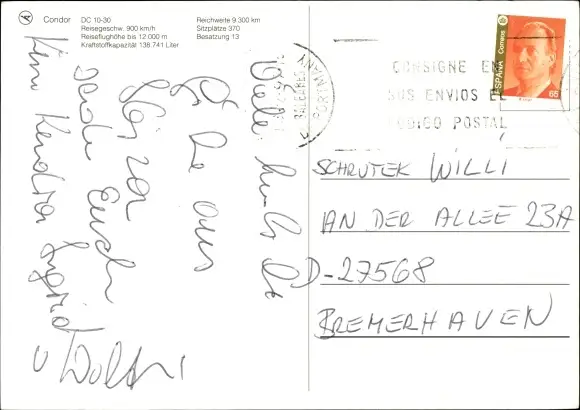 Condor
DC 10-30
Reisegeschw. 900 km/h
Reiseflughöhe bis 12 000 m
Kraftstoffkapazität 138.741 Liter
Reichweite 9 300 km
Sitzplätze 370
Besatzung 13
CONSIGNE EN
SUS ENVIOS EL
CODIGO POSTAL
BALEARES
ESPAÑA
Correos
65
SCHRUTEK WILLI
AN DER ALLEE 23A
D-27568
BREMERHAVEN
Viele
aus
Ibiza
Euch
Kim Kendra Ingrid
u Wolf